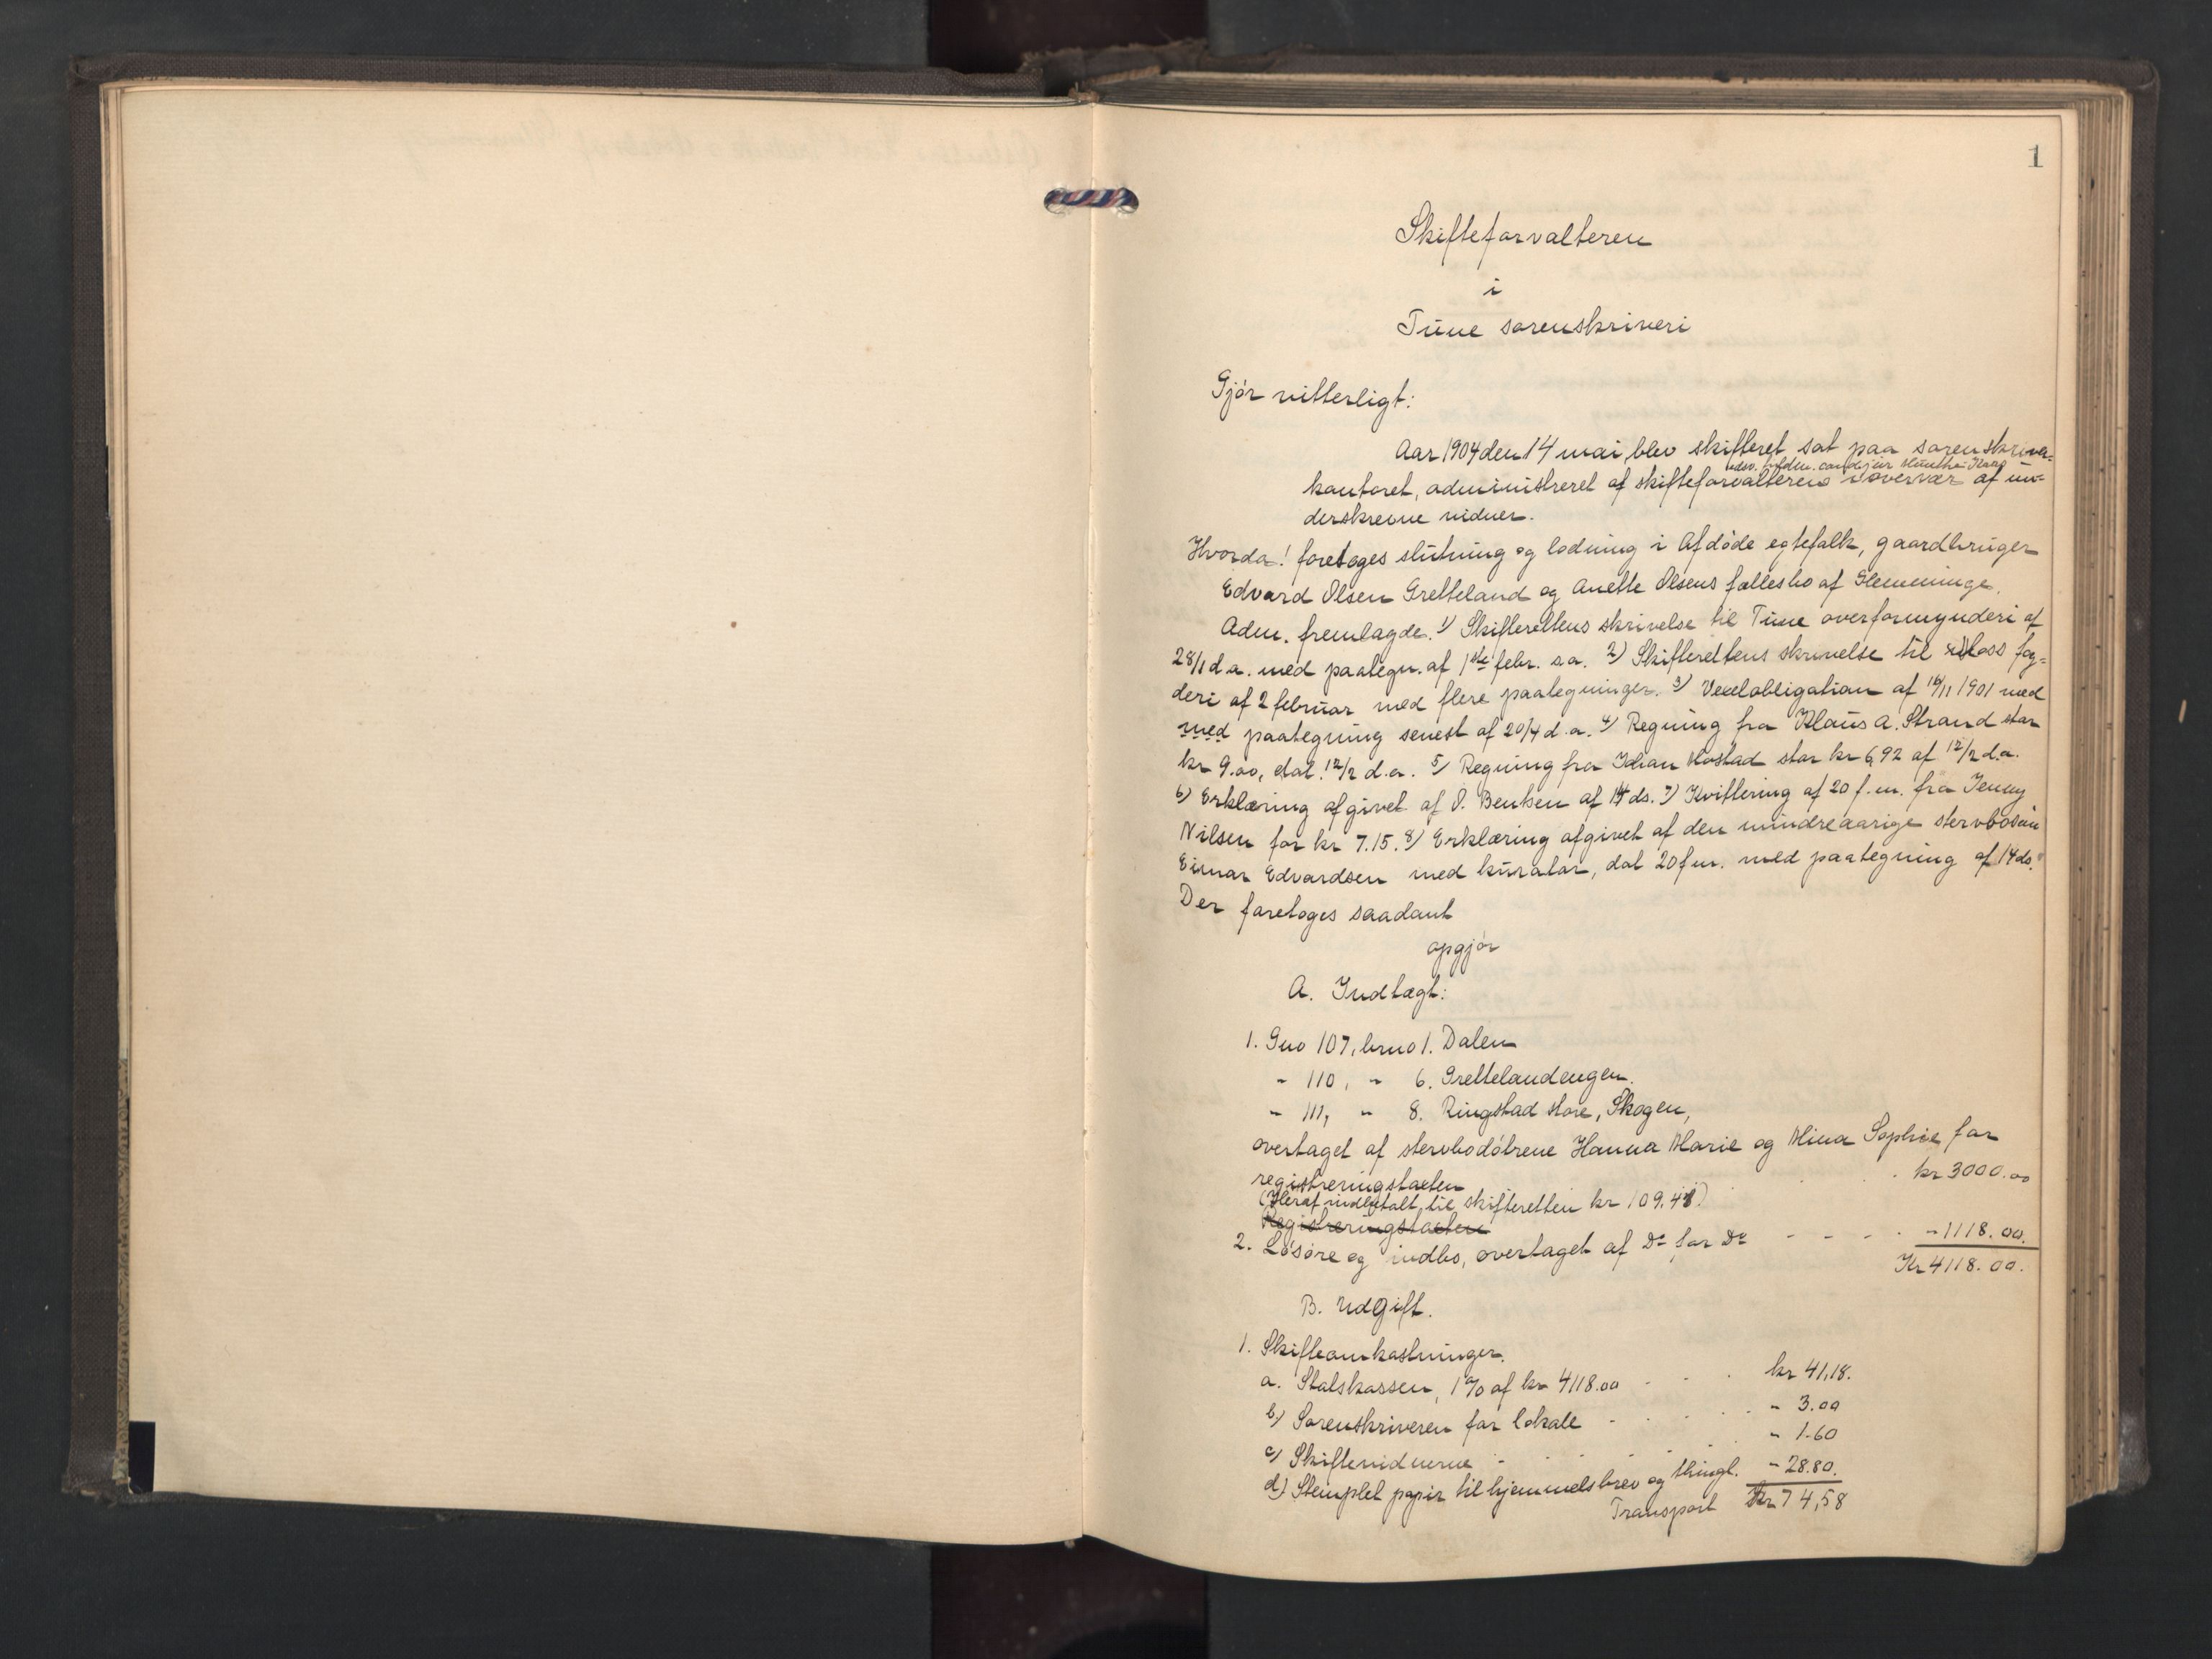 1
Skifteforvalteren
i
Tune sorenskriveri
Gjör vitterligt:
Aar 1904 den 14 mai blev skifteret sat paa sorenskriver-
edsv. fuldm. cand jur Munthe Kaas
kontoret, administreret af skifteforvalterens i overvær af un-
derskrevne vidner.
Hvorda! foretoges slutning og lodning i Afdöde egtefolk, gaardbruger
Edvard Olsen Gretteland og Anette Olsens fællesbo af Glemminge.
Adm. fremlagde. 1) Skifterettens skrivelse til Tune overformynderi af
28/1 d.a. med paategn. af 1ste febr. s.a. 2) Skifterettens skrivelse til Moss fog-
deri af 2 februar med flere paategninger. 3) Vexelobligation af 16/11 1901 med
med paategning senest af 20/4 d.a. 4) Regning fra Klaus A. Strand stor
kr 9.00, dat. 12/2 d.a. 5) Regning fra Johan Mostad stor kr 6,92 af 12/2 d.a.
6) Erklæring afgivet af O. Bentsen af 14 ds. 7) Kvittering af 20 f.m. fra Jenny
Nilsen for kr 7.15. 8) Erklæring afgivet af den mindreaarige stervbosön
Einar Edvardsen med kurator, dat 20 f.m. med paategning af 14 ds.
Der foretoges saadant
opgjör
A. Indtægt:
1. Gno 107, brno 1. Dalen
" 110, " 6. Grettelandengen.
" 111, " 8. Ringstad store, Skogen,
overtaget af stervbodötrene Hanna Marie og Mina Sophie for
registreringstaxten . . . kr 3000.00
(Heraf indbetalt til skifteretten kr 109.48)
Registreringstaxten
2. Lösöre og indbo, overtaget af Do for Do - - - - 1118.00.
Kr 4118.00.
B. Udgift.
1. Skifteomkostninger.
a. Statskassen, 1% af kr 4118.00 - - . kr 41,18.
b) Sorenskriveren for lokale - . . . . - 3.00
c) Skiftevidnerne - . . . . - 1.60
d) Stemplet papir til hjemmelsbrev og thingl. - 28.80.
Transport Kr 74,58